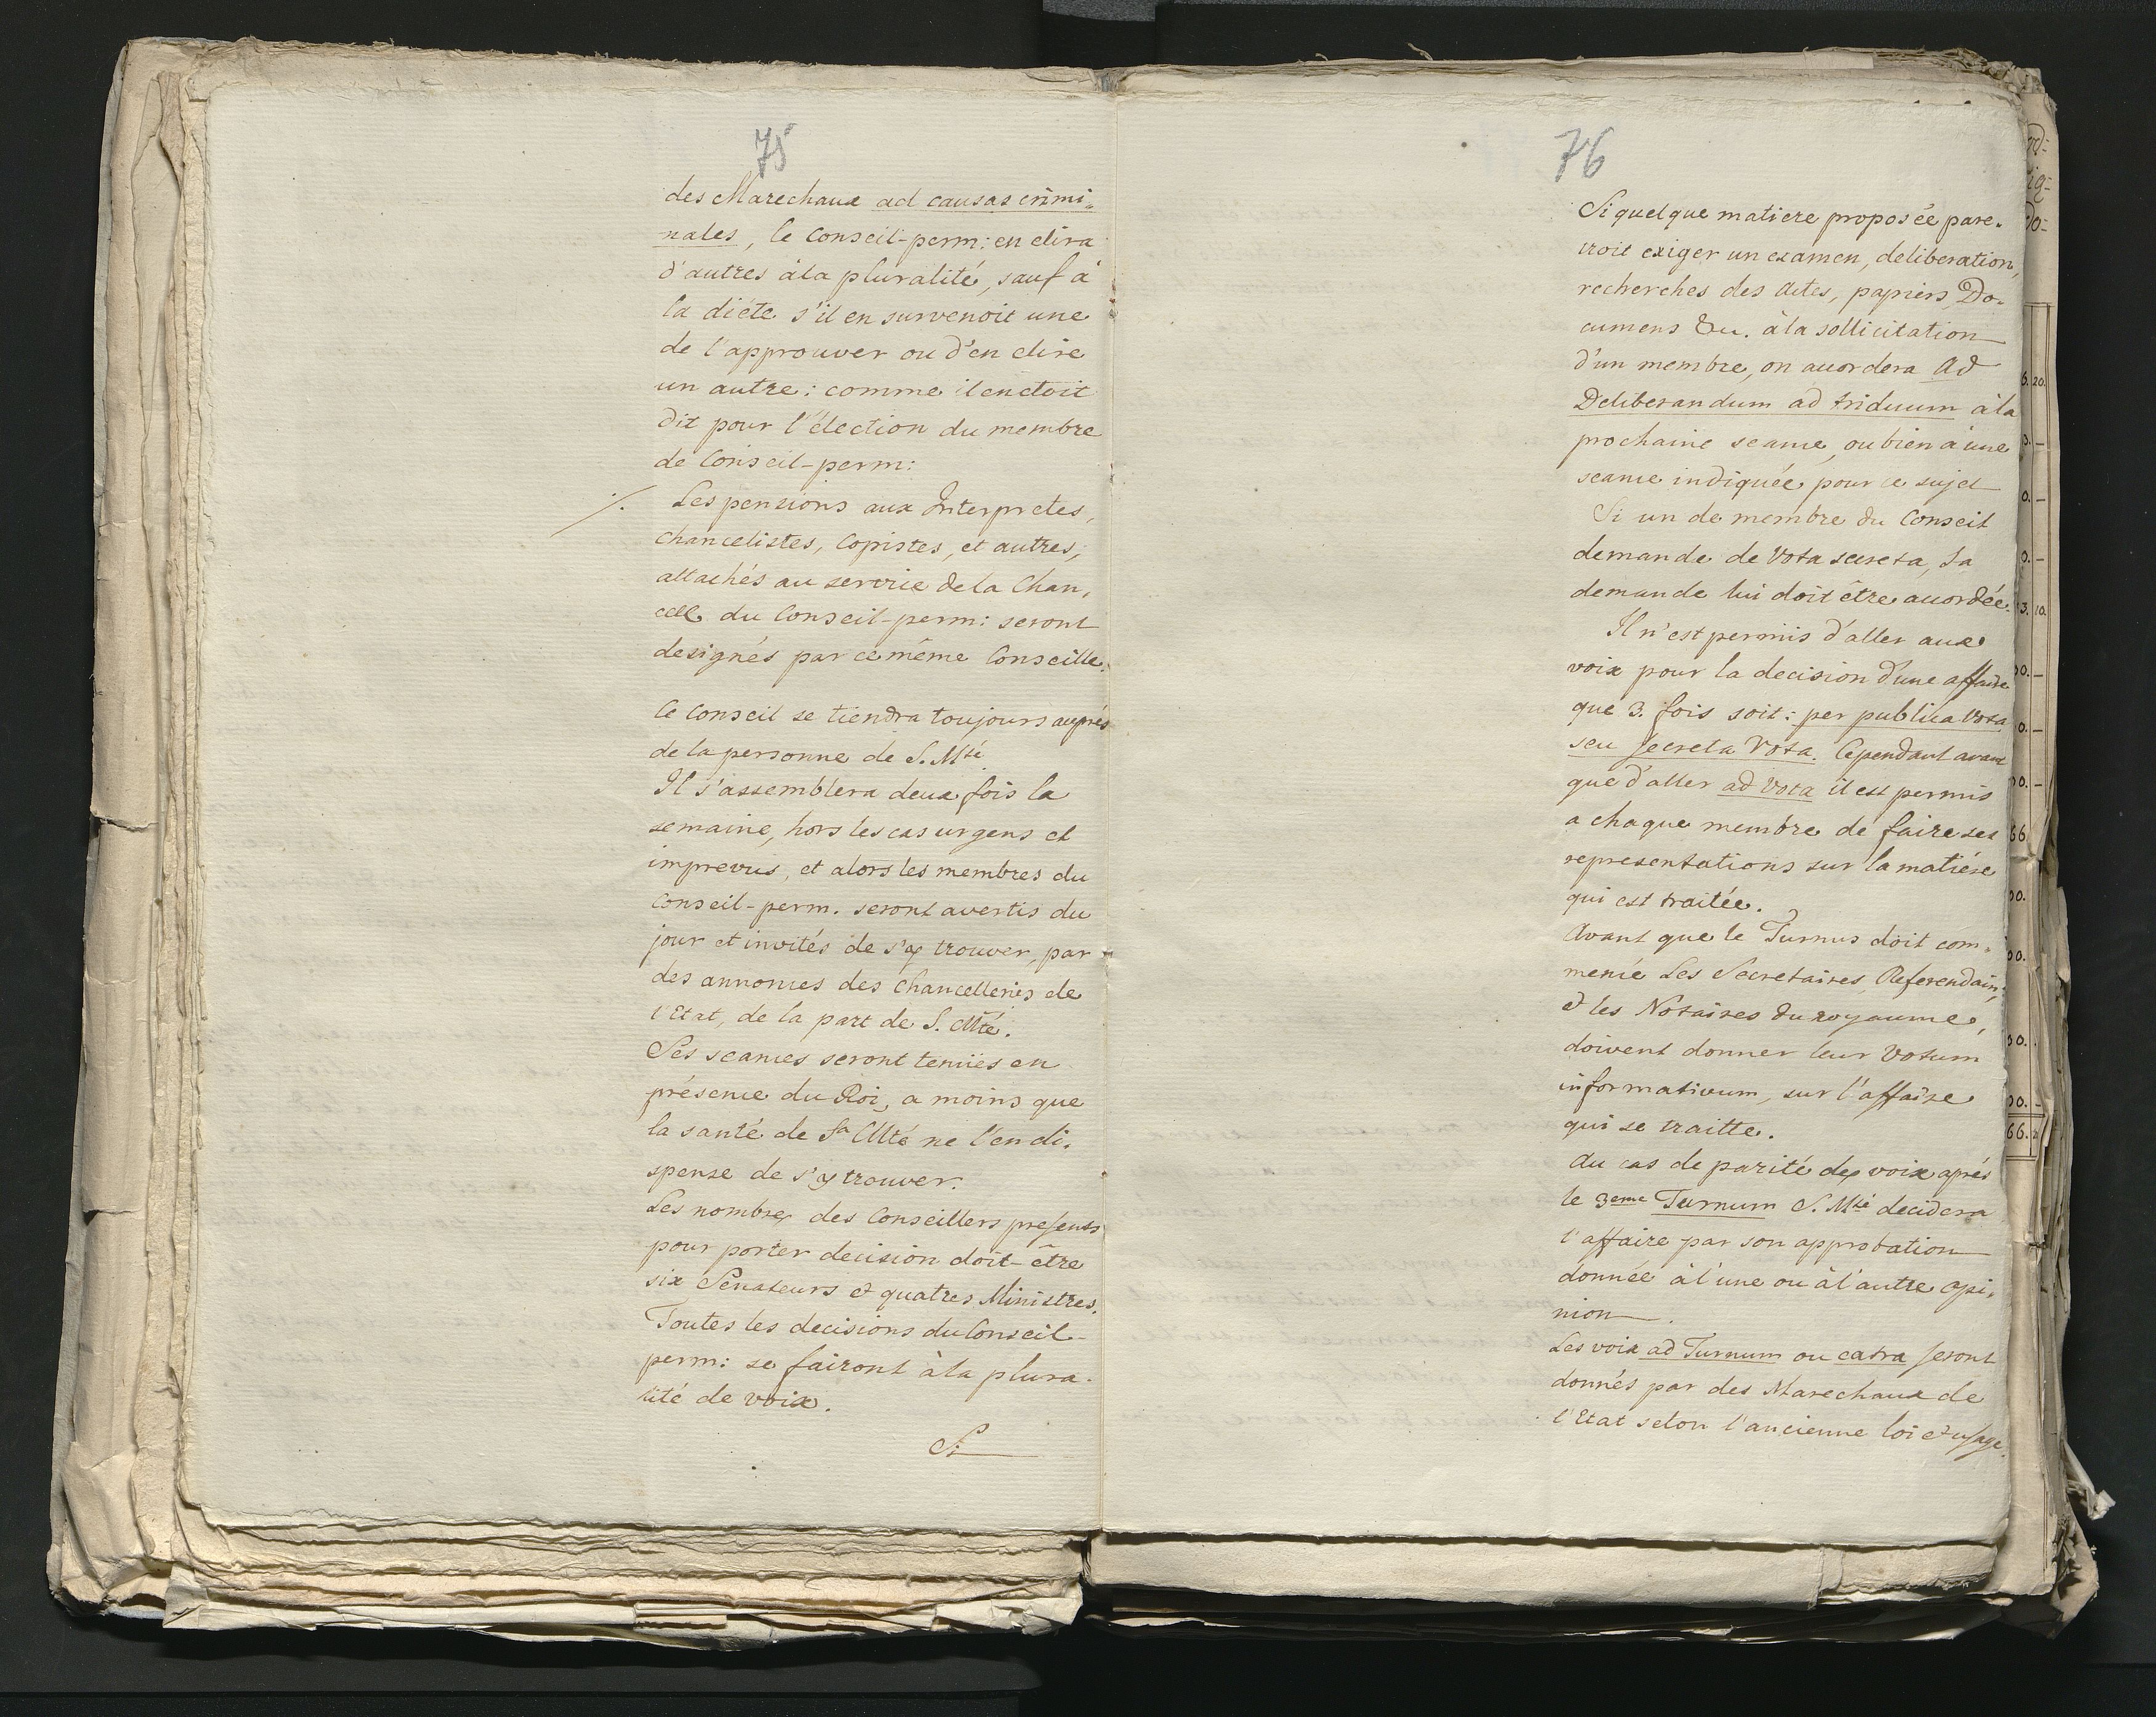 75
des Marechaux ad causas crimi„
nales, le Conseil-perm: en elira
d'autres à la pluralité, sauf à
la diéte s'il en survenoit une
de l'approuver ou d'en elire
un autre: comme il en etoit
dit pour l'élection du membre
de Conseil-perm:
Les pensions aux Interpretes,
Chancelistes, Copistes, et autres,
attachés au service de la Chan,
cell du Conseil-perm: seront
designés par ce même Conseille.
Ce Conseil se tiendra toujours auprés
de la personne de S. Mté
Il s'assemblera deux fois la
semaine, hors les cas urgens et
imprevus, et alors les membres du
Conseil-perm. seront avertis du
jour et invités de s'y trouver, par
des annonces des Chancelleries de
l'Etat, de la part de S. Mté.
Ses seances seront tenües en
présence du Roi, a moins que
la santé de Sa Mté ne l'en di„
spense de s'y trouver.
Les nombres des Conseillers presens
pour porter decision doit-être
six Senateurs et quatres Ministres.
Toutes les decisions du Conseil-
perm: se fairont à la plura-
lité de voix.
Si
76
Si quelque matiere proposée pare„
troit exiger un examen, deliberation,
recherches des Actes, papiers, Do„
cumens &c. à la sollicitation
d'un membre, on accordera Ad
Deliberandum ad triduum à la
prochaine seance, ou bien à une
seance indiquée pour ce sujet
Si un de membre du Conseil
demande de Vota secreta, sa
demande lui doit être accordée.
Il n'est permis d'aller aux
voix pour la decision d'une affaire
que 3. fois soit: per publica Vota
seu secreta Vota. Cependant avant
que d'aller ad Vota il est permis
a chaque membre de faire ses
representations sur la matiére
qui est traitée.
Avant que le Turnus doit com„
mencé Les Secretaires, Referendair,
et les Notaires du royaume,
doivent donner leur Votum
informativum, sur l'affaire
qui se traitte.
Au cas de parité des voix aprés
le 3eme Turnum S. Mté decidera
l'affaire par son approbation
donnée à l'une ou à l'autre opi„
nion.
Les voix ad Turnum ou extra seront
donnés par des Marechaux de
l'Etat selon l'ancienne loi et usage.